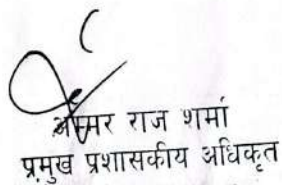 अमर राज शर्मा
प्रमुख प्रशासकीय अधिकृत